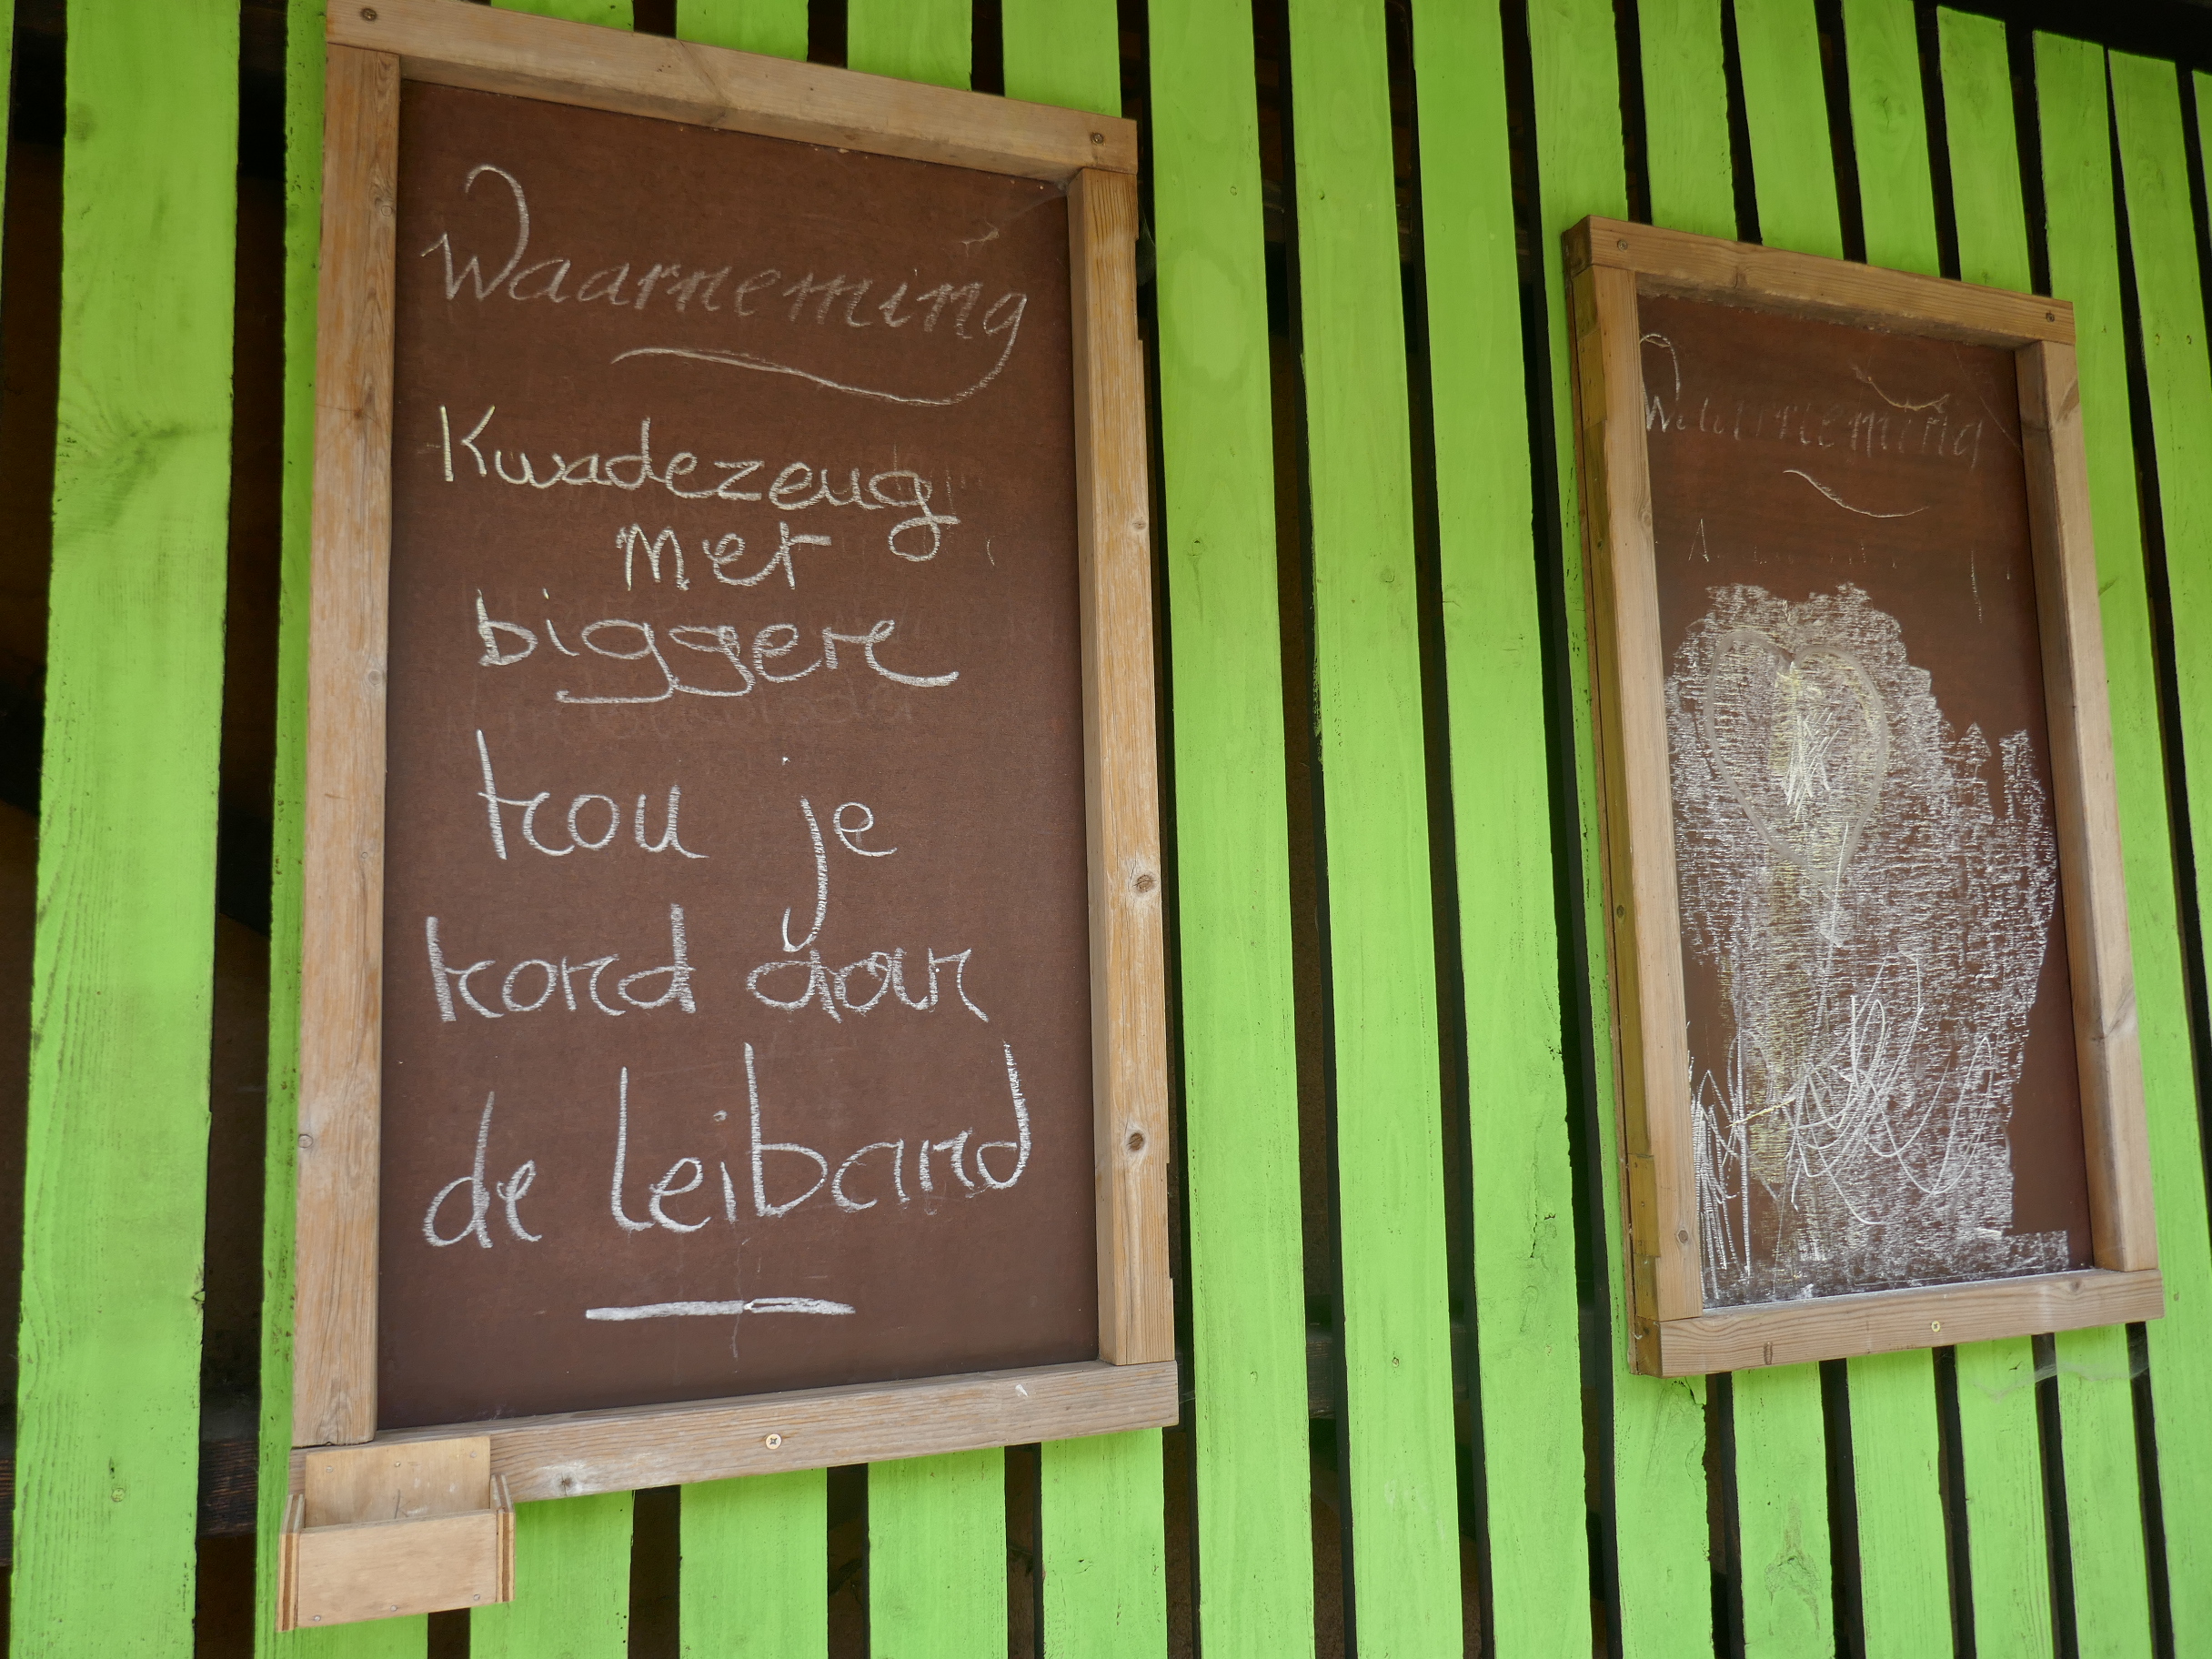 Waarneming
Kwadezeug
met
biggere
kou je
kond aan
de leiband
Waarneming